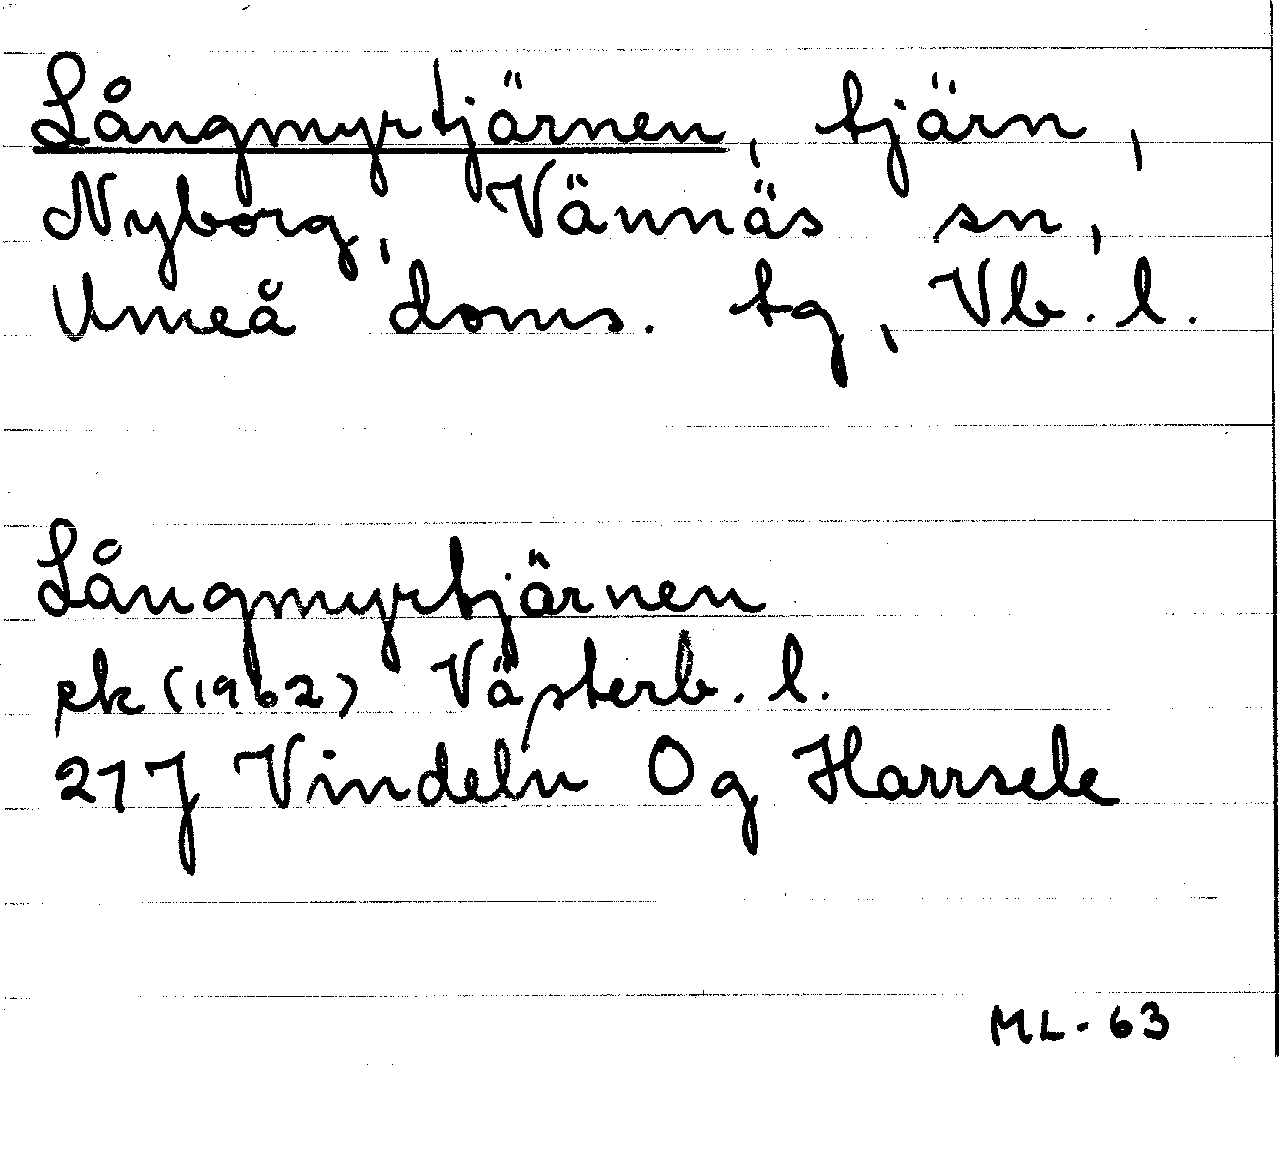 Långmyrtjärnen, tjärn,
Nyborg, Vännäs sn,
Umeå doms. tg, Vb. l.
Långmyrtjärnen
rk (1962) Västerb. l.
21J Vindeln Og Harrsele
ML-63